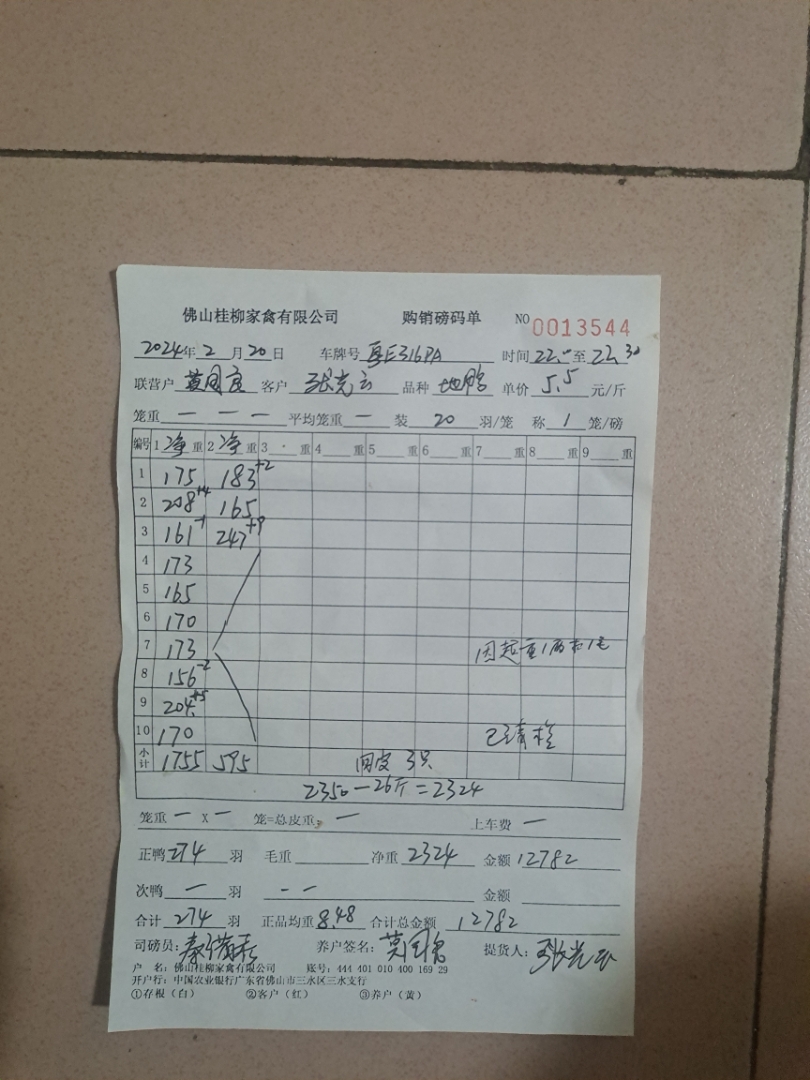 佛山桂柳家禽有限公司 购销磅码单 NO 0013544
2024年 2 月 20 日 车牌号 粤E316PA 时间 22:00 至 22:30
联营户 客户 张光云 品种 地鸭 单价 5.5 元/斤
笼重 — — — 平均笼重 — 装 20 羽/笼 称 1 笼/磅
编号 1 净 重 2 净 重 3 重 4 重 5 重 6 重 7 重 8 重 9 重
1 175 183+2
2 208+4 165
3 161-1 247+9
4 173
5 165
6 170
7 173
8 156-2
9 204+5
10 170
小计 1755 595 网皮 3只
2350-26斤=2324
已清栏
笼重 — X — 笼=总皮重: — 上车费 —
正鸭 274 羽 毛重 净重 2324 金额 12782
次鸭 — 羽 — — 金额
合计 274 羽 正品均重 8.48 合计总金额 12782
司磅员: 养户签名: 提货人: 张光云
户 名: 佛山桂柳家禽有限公司 账号: 444 401 010 400 169 29
开户行: 中国农业银行广东省佛山市三水区三水支行
①存根（白） ②客户（红） ③养户（黄）